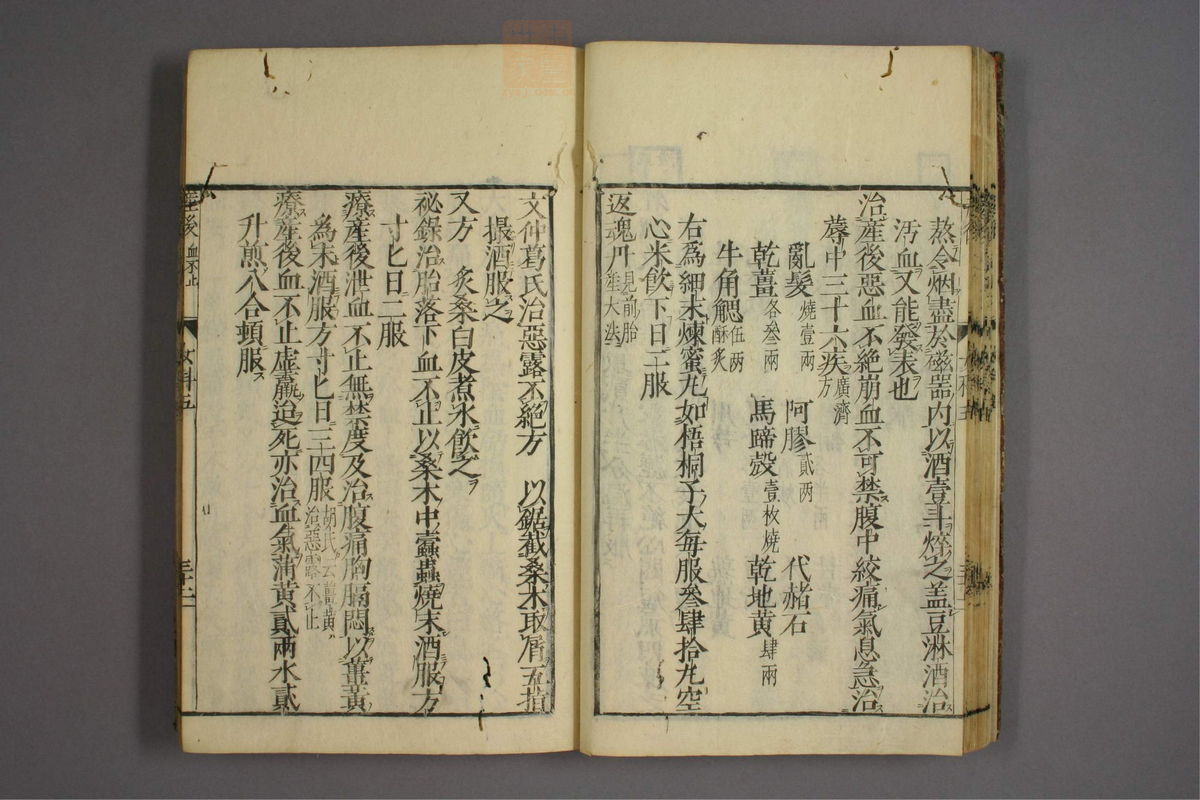 熬令烟盡於磁器内以酒壹斗焠之盖豆淋酒治
汚血又能發表也
治産後惡血不絶崩血不可禁腹中絞痛氣息急治
蓐中三十六疾方廣濟
亂髮燒壹兩 阿膠貳两 代赭石
乾薑各叁兩 馬蹄殻壹枚燒 乾地黄肆兩
牛角䚡伍两酥炙
右爲細末煉蜜丸如梧桐子大每服叁肆拾丸空
心米飲下日二服
返魂丹見前胎
文仲葛氏治惡露不絶方 以鋸截桑木取屑五指
撮酒服之
又方 炙桑白皮煮水飲之
祕錄治胎落下血不止以桑木中蠹蟲燒末酒服方
寸匕日二服
療産後泄血不止無禁度及治腹痛胸膈悶以薑黄
為末酒服方寸匕日三四服胡氏云薑黄治惡露不止
療産後血不止虚羸迫死亦治血氣蒲黄貳兩水貳
升煎八合頓服
産後 血不止 女科五